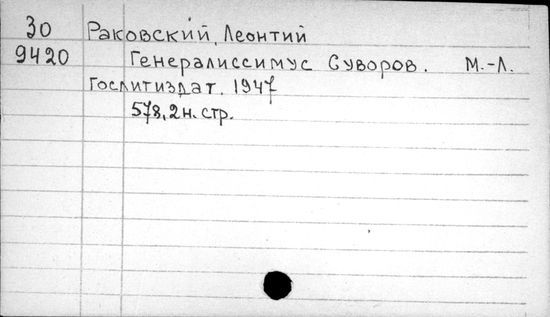 30 Раковский, Леонтий
9420 Генералиссимус Суворов. М.-Л.
Гослитиздат. 1947
578, 2 н. стр.